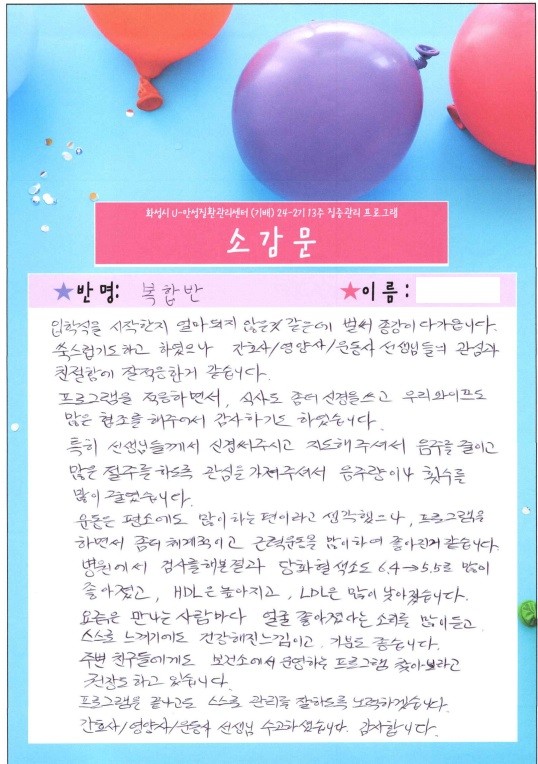 화성시 U-만성질환관리센터 (기배) 24-2기 13주 집중관리 프로그램
소감문
반 명: 복합반
이 름:
입학식을 시작한지 얼마되지 않은것 같은데 벌써 종강이 다가옵니다.
쑥스럽기도하고 하였으나 간호사/영양사/운동사 선생님들의 관심과
친절함에 잘적응한거 같습니다.
프로그램을 적응하면서, 식사도 좀더 신경을쓰고 우리와이프도
많은 협조를 해주어서 감사하기도 하였습니다.
특히 선생님들께서 신경써주시고 지도해주셔서 음주를 줄이고
많은 절주를 하도록 관심을 가져주셔서 음주량이나 횟수를
많이 줄였습니다.
운동은 평소에도 많이하는편이라고 생각했으나, 프로그램을
하면서 좀더 체계적이고 근력운동을 많이하여 좋아진거 같습니다.
병원에서 검사를해본결과 당화혈색소도 6.4→5.5로 많이
좋아졌고, HDL은 높아지고, LDL은 많이 낮아졌습니다.
요즘은 만나는 사람마다 얼굴 좋아졌다는 소리를 많이듣고
스스로 느끼기에도 건강해진느낌이고, 기분도 좋습니다.
주변 친구들에게도 보건소에서 운영하는 프로그램 찾아보라고
권장도하고 있습니다.
프로그램을 끝나고도 스스로 관리를 잘하도록 노력하겠습니다.
간호사/영양사/운동사 선생님 수고하셨습니다. 감사합니다.